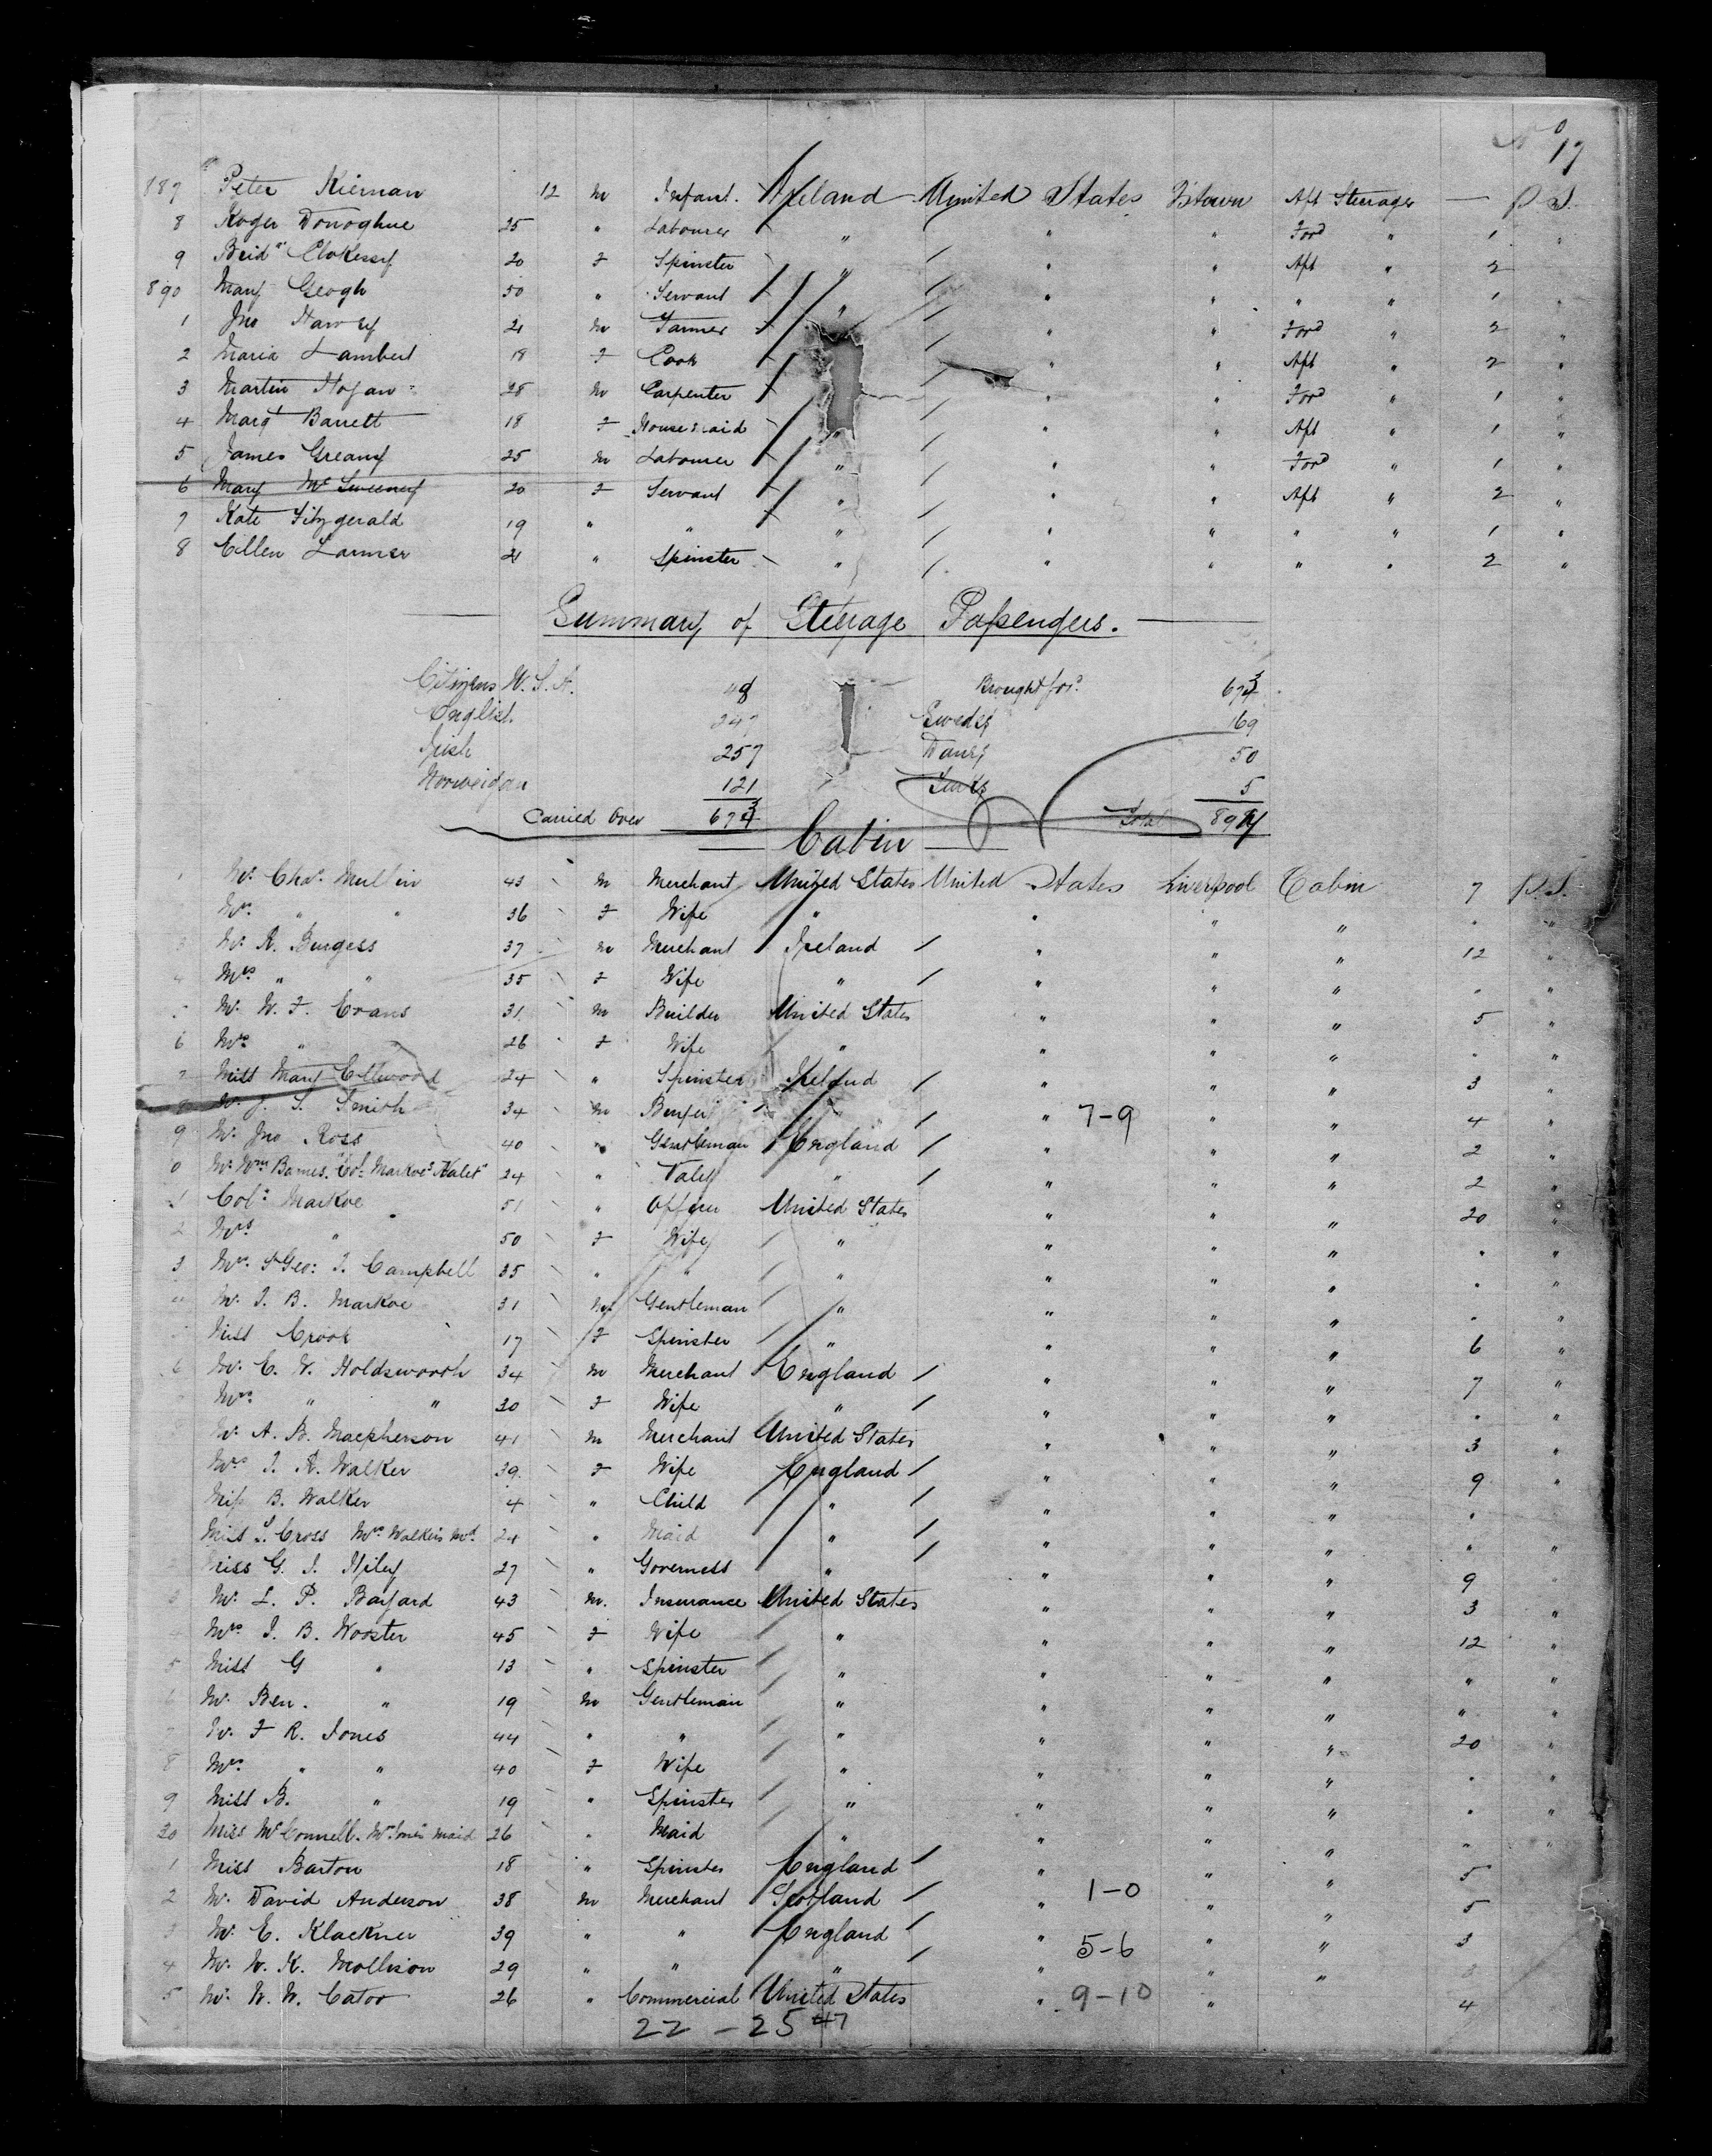 No 17
887 Peter Kiernan 12 m Infant. Ireland United States Q'stown Aft Steerage — P.S.
8 Roger Donoghue 25 " Labourer " " " Ford " 1 "
9 Brid Clokessy 20 F Spinster " " " Aft " 2 "
890 Mary Geogh 50 " Servant " " " " " 1 "
1 Jno Harvey 21 m Farmer " " Ford " 2 "
2 Maria Lambert 18 F Cook " " Aft " 2 "
3 Martin Hogan 28 m Carpenter " " Ford " 1 "
4 Margt Barrett 18 F Housemaid " " " Aft " 1 "
5 James Greany 25 m Labourer " " " Ford " 1 "
6 Mary McSweeney 20 F Servant " " " Aft " 2 "
7 Kate Fitzgerald 19 " " " " " " " 1 "
8 Ellen Larmer 21 " Spinster " " " " " 2 "
Summary of Steerage Passengers.
Citizens U.S.A. 48 Brought ford 673
English 247 Swedes 169
Irish 257 Danes 50
Norweigan 121 5
Carried Over 673 Total 897
Cabin
1 Mr. Chas. Mullin 43 m Merchant United States United States Liverpool Cabin 7 P.S.
Mrs. " " 36 F Wife " " " " " "
3 Mr. R. Burgess 37 m Merchant Ireland " " " 12 "
4 Mrs " " 35 F Wife " " " " " "
5 Mr. W. F. Evans 31 m Builder United States " " " 5 "
6 Mrs " 26 F Wife " " " " " "
7 Miss Mary Ellwood 24 " Spinster Ireland " " " 3 "
8 Mr. J. S. Smith 34 m " " 7-9 " " 4 "
9 Mr. Jno Ross 40 " Gentleman England " " " 2 "
0 Mr. Wm Barnes. "Col. Markoe's Valet" 24 " Valet " " " " 2 "
1 Col. Markoe 51 " Officer United States " " " 20 "
2 Mrs " 50 F Wife " " " " " "
3 Mrs. St Geo: T. Campbell 35 " " " " " " " "
4 Mr. J. B. Markoe 31 m Gentleman " " " " " "
5 Miss Crook 17 F Spinster " " " " 6 "
6 Mr. E. W. Holdsworth 34 m Merchant England " " " 7 "
Mrs " " 30 F Wife " " " " " "
8 Mr. A. B. Macpherson 41 m Merchant United States " " " 3 "
Mrs J. R. Walker 39 F Wife England " " " 9 "
Miss B. Walker 4 " Child " " " " " "
Miss S. Cross Mrs Walkers Md. 24 " Maid " " " " " "
Miss G. J. 27 " Governess " " " " 9 "
3 Mr. L. P. Bayard 43 m. Insurance United States " " " 3 "
Mrs J. B. Wooster 45 F Wife " " " " 12 "
5 Miss G " 13 " Spinster " " " " " "
6 Mr. Ben. " 19 m Gentleman " " " " " "
7 Mr. F R. Jones 44 " " " " " " 20 "
8 Mrs. " " 40 F Wife " " " " " "
9 Miss B. " 19 " Spinster " " " " " "
30 Miss McConnell. Mrs Jones maid 26 " Maid " " " " " "
1 Miss Barton 18 " Spinster England " " " 5
2 Mr. David Anderson 38 m Merchant Scotland " 1-0 " " 5
3 Mr. E. Klackner 39 " " England " 5-6 " " 3
4 Mr. W. K. Mollison 29 " " " " " " 3
5 Mr. W. W. Cator 26 " Commercial United States " 9-10 " 4
22 - 25 47